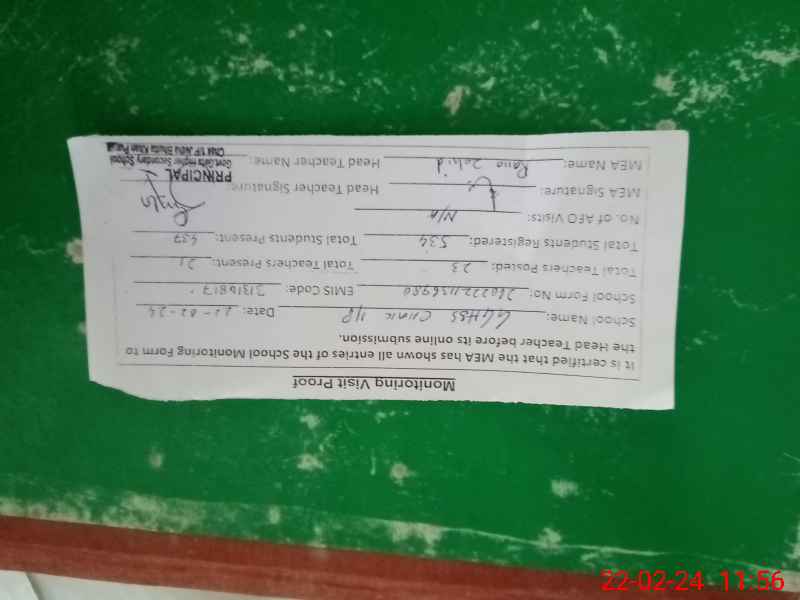 Monitoring Visit Proof
It is certified that the MEA has shown all entries of the School Monitoring Form to
the Head Teacher before its online submission.
School Name: GGHSS Chak 1/P Date: 22-02-24
School Form No: EMIS Code: 31310817
Total Teachers Posted: 23 Total Teachers Present: 21
Total Students Registered: 534 Total Students Present: 437
No. of AFO Visits: N/A
MEA Signature: Head Teacher Signature:
MEA Name: Rana Zahid Head Teacher Name:
PRINCIPAL
Govt. Girls Higher Secondary School
22-02-24 11:56